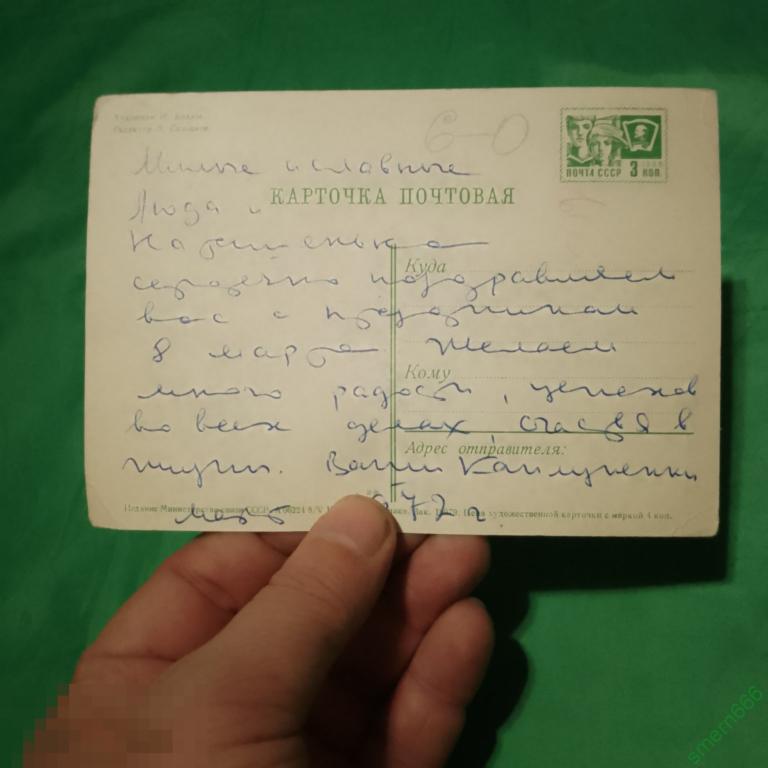 6-0
ПОЧТА СССР 3 КОП.
Милые и славные
КАРТОЧКА ПОЧТОВАЯ
Люда и
Куда
сердечно поздравляем
вас с праздником
8 марта Желаем
Кому
много радости, успехов
во всех делах, счастья в
Адрес отправителя:
жизни. Ваши
Издание Министерства связи СССР. художественной карточки с маркой 4 коп.
март 1972 г
smern666